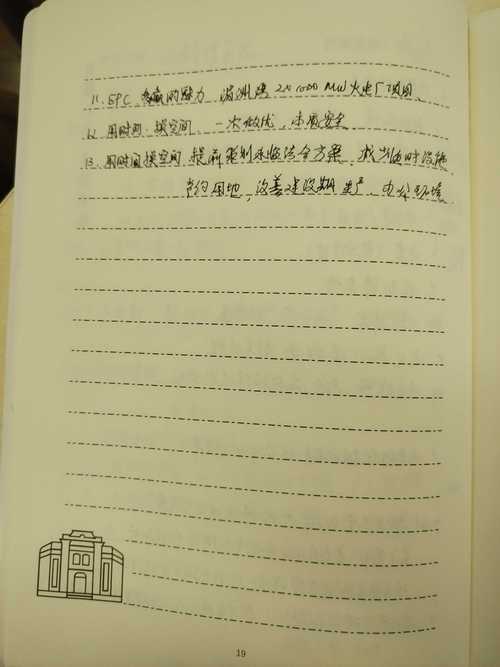 11. EPC 总承包的魅力 湄洲湾 2×1000MW火电厂项目、
12. 用时间 换空间 一次做优，本质安全
13. 用时间换空间 提前策划永临结合方案 减少临时设施
节约用地，改善建设期 生产、办公环境
19